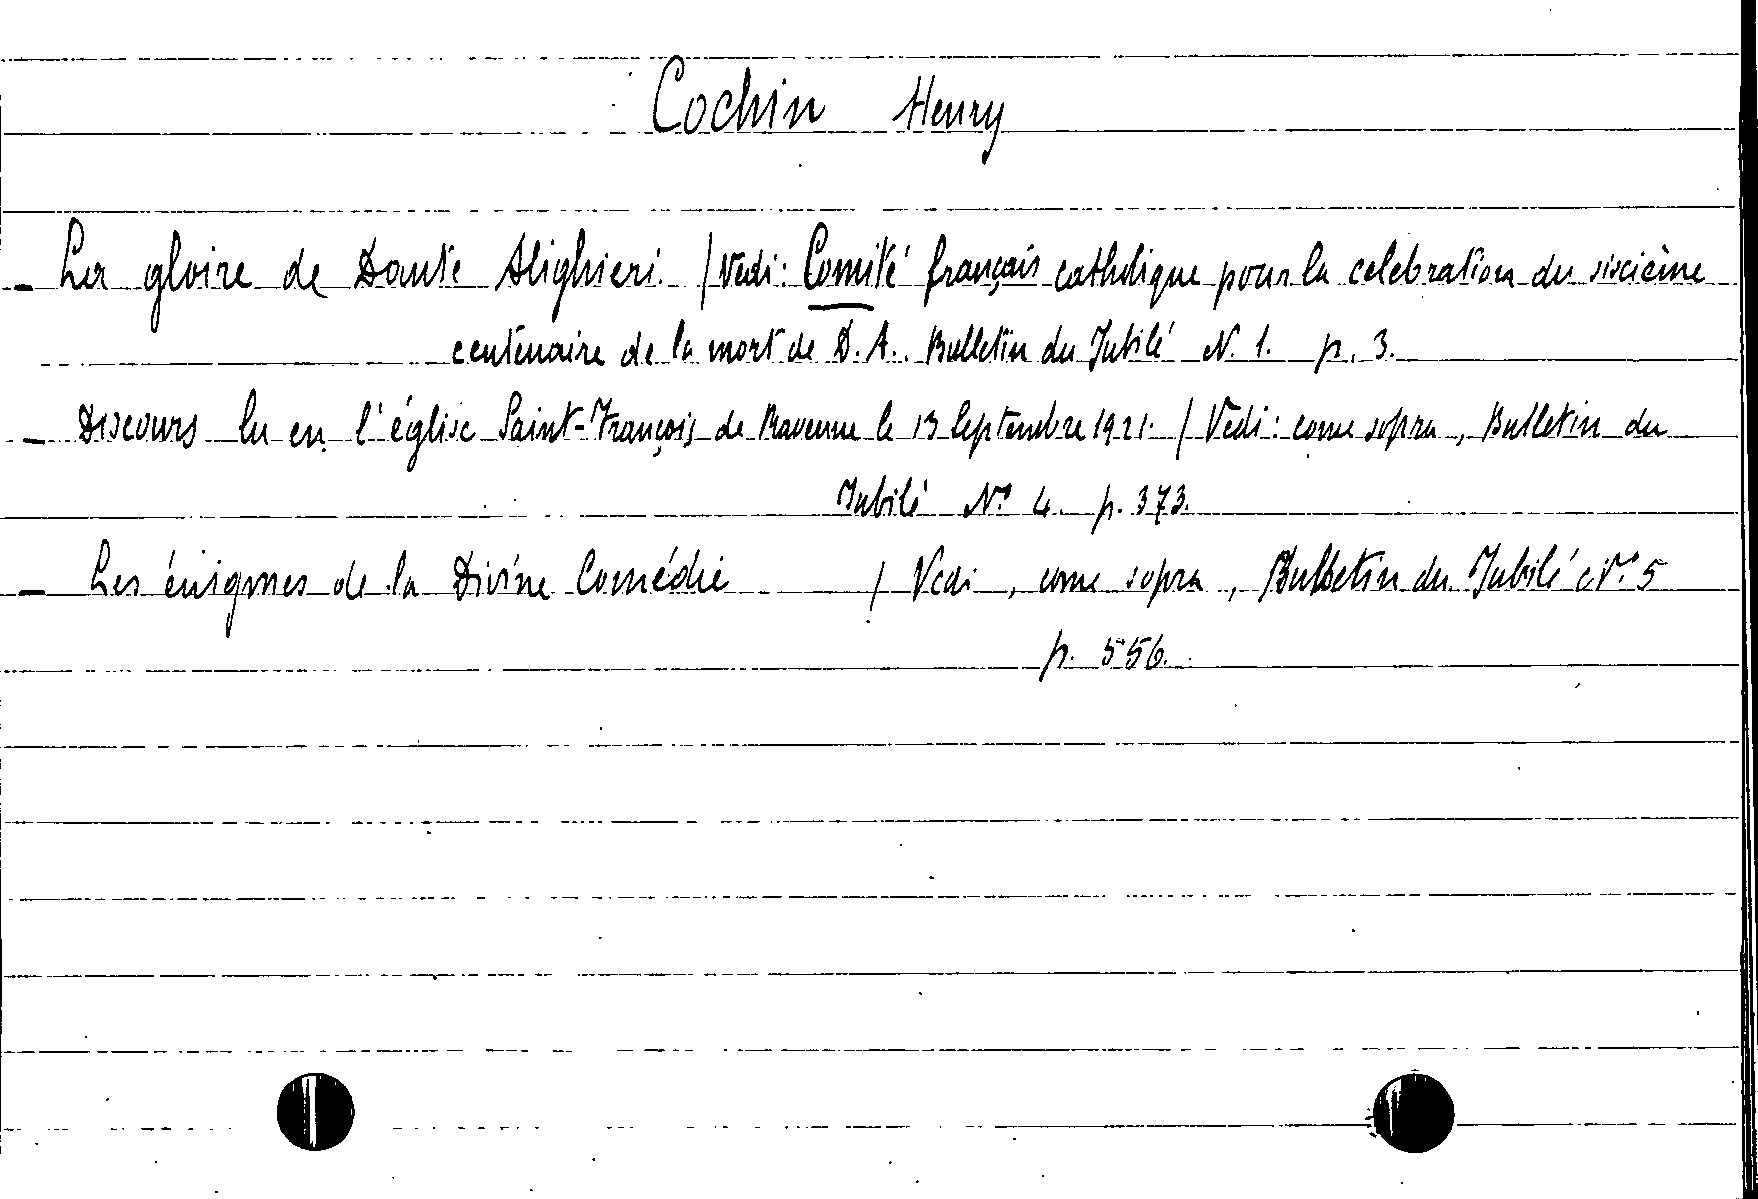 Cochin Henry
- La gloire de Dante Alighieri. / Vedi: Comité français catholique pour la celebration du sixième
centenaire de la mort de D. A. Bulletin du Jubilé N. 1. p. 3.
- Discours lu en l'église Saint-François de Ravenne le 13 Septembre 1921. / Vedi: come sopra, Bulletin du
Jubilé N° 4. p. 373.
- Les énigmes de la Divine Comédie / Vedi, come sopra, Bulletin du Jubilé N° 5
p. 556.